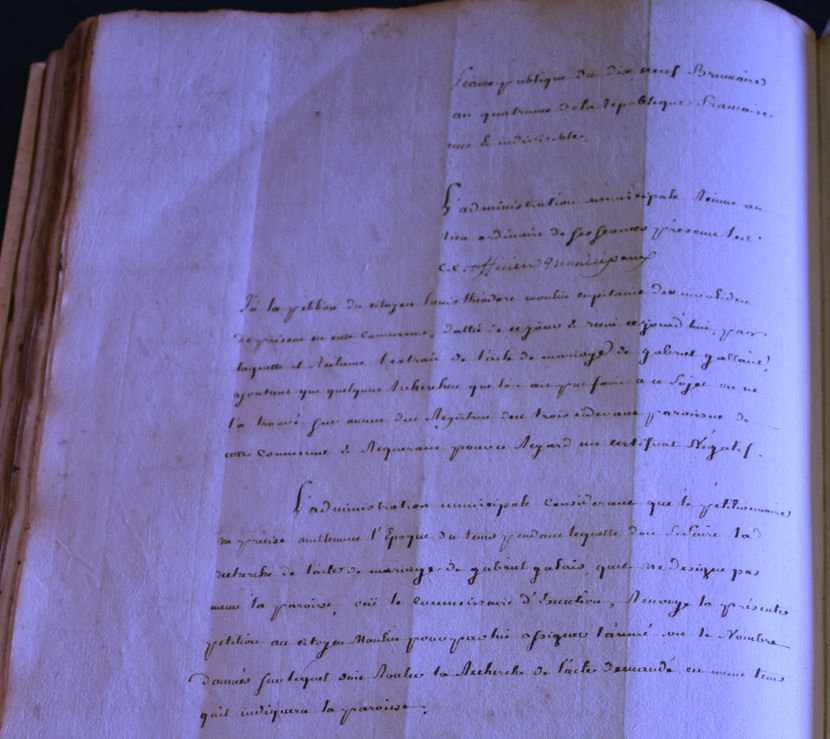 Séance publique du dix neuf Brumaire
an quatrieme de la republique francaise
une & indivisible.
L'administration municipale tenue au
lieu ordinaire de ses seances présens les
officiers municipaux
Vû la petition du citoyen Louis théodore moulin capitaine des invalides
en cette commune, dattée de ce jour & remie cejourd'hui, par
laquelle il Reclame l'extrait de l'acte de mariage de gabriel gallais,
ajoutant que quelques Recherches que l'on ait pu faire a ce sujet on ne
l'a trouvé sur aucun des Registres des trois cidevant paroisses de
cette commune & Requerant pour ce Regard un certificat Négatif.
L'administration municipale considerant que le petitionnaire
ne précise nullement l'Epoque du tems pendant lequelle doit se faire la
recherche de l'acte de mariage de gabriel galais, quil ne designe pas
meme la paroisse, oüi le commissaire d'Execution, Renvoye la présente
petition au citoyen Moulin pour par lui assigner l'année ou le Nombre
dannées sur lequel doit Rouler la Recherche de l'acte demandé en meme tems
quil indiquera la paroisse.